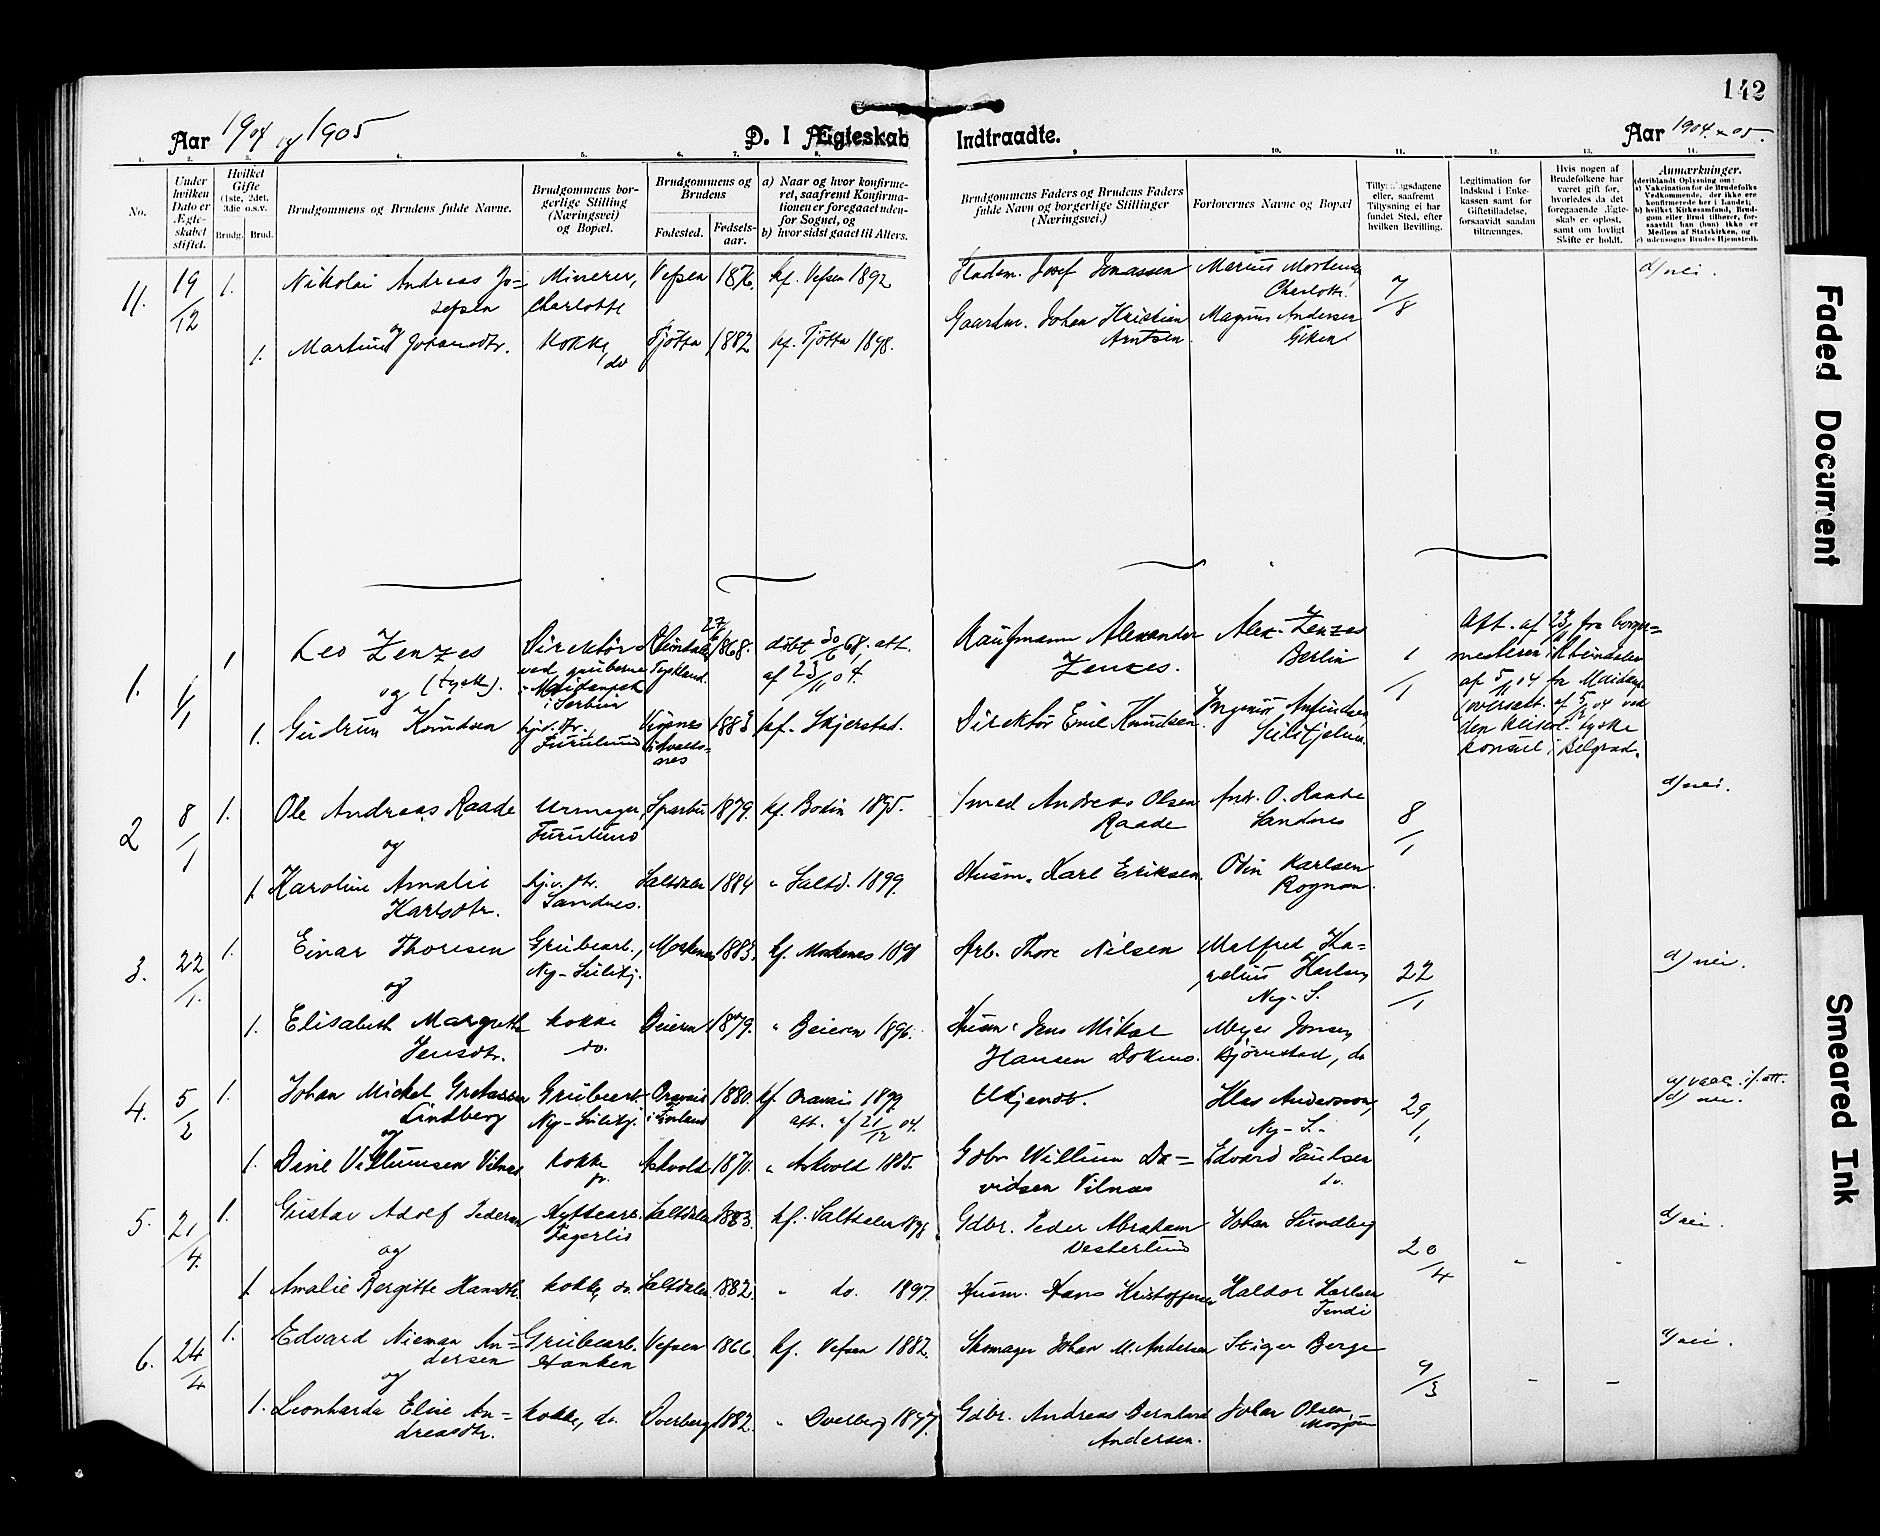 142
Aar 1904 og 1905
D. I Ægteskab Indtraadte.
Aar 1904 & 05.
1. 2. 3. 4. 5. 6. 7. 8. 9. 10. 11. 12. 13. 14.
No.
Under hvilken Dato er Ægteskabet stiftet.
Hvilket Gifte (1ste, 2det, 3die o.s.v.
Brudg. Brud.
Brudgommens og Brudens fulde Navne.
Brudgommens borgerlige Stilling (Næringsvei) og Bopæl.
Brudgommens og Brudens
Fødested. Fødselsaar.
a) Naar og hvor konfirmeret, saafremt Konfirmationen er foregaaet udenfor Sognet, og
b) hvor sidst gaaet til Alters.
Brudgommens Faders og Brudens Faders fulde Navn og borgerlige Stillinger (Næringsvei.)
Forlovernes Navne og Bopæl
Tillysningsdagene eller, saafremt Tillysning ei har fundet Sted, efter hvilken Bevilling.
Legitimation for Indskud i Enkekassen samt for Giftetilladelse, forsaavidt saadan tiltrænges.
Hvis nogen af Brudefolkene har været gift før, hvorledes da det foregaaende Ægteskab er opløst, samt om lovligt Skifte er holdt.
Anmærkninger.
(deriblandt Oplysning om:
a) Vakcination for de Brudefolks Vedkommende, der ikke ere konfirmerede her i Landet;
b) hvilket Kirkesamfund, Brudgom eller Brud tilhører, forsaavidt han (hun) ikke er Medlem af Statskirken, og
c) udensogns Brudes Hjemsted).
11. 19/12 1. Nikolai Andreas Josefsen Minerer, Charlotte Vefsen 1876. kf. Vefsen 1892 Josef Jonassen Marius Charlotta 7/8 d) nei.
og
1. Johansdtr. Kokke, do Tjøtta 1882 kf. Tjøtta 1898. Gaardm. Johan Kristian Arntsen. Magnus Andersen Giken
1. 1/1 1 Leo Zenzes Direktør ved gruberne i Maidanpek i Serbien Tyskland. 27/6 1868. døbt 30/6 68. att. af 23/11 04 Kaufmann Alexander Zenzes. Alex. Zenzes Berlin 1/1
og (tysk).
1. Gudrun Knudsen hjv. dtr. Furulund 1883 kf. Skjerstad. Direktør Emil Knudsen. Ingeniør Sulitjelma.
Att. af 23/11 fra borgermesteren i
af 5/11 04 fra
oversatt. af 5/11 04 ved
den keiserl. tyske
konsul i Belgrad.
2 8/1 1. Ole Andreas Raade Urmager, Furulund Sparbu 1879. kf. Bodin 1895. Smed Andreas Olsen Raade Andr. O. Raade Sandnes 8/1 d) nei.
og
1. Karoline Amalie Karlsdtr. hj.v. dtr. Sandnes. Saltdalen 1884 " Saltd. 1899. Husm. Karl Eriksen. Odin Karlsen Rognan.
3. 22/1. 1. Einar Thoresen Grubearb., Ny-Sulitj. Moskenes 1883. kf. Moskenes Arb. Thore Nilsen Ny-S. 22/1 d) nei.
og
1. Elisabeth Margrethe Jensdtr. kokke do. Beieren 1879. " Beieren 1896. Husm. Jens Mikal Hansen Meyer Jonsen Bjørnstad, do
4. 5/2 1. Johan Mickel Lindberg Grubearb. Ny-Sulitj. Oravais i Finland 1880. kf. Oravais 1899. att. af 21/12 04. Ukjendt. Klas Andersson, Ny-S. 29/1 a) vacc. if. att. d) nei.
og
1. Dine Villumsen Vilnes kokke Askvold 1870. " Askvold 1885. Gdbr. Willum Davidsen Vilnes Edvard Paulsen do.
5. 21/4. 1. Gustav Adolf Pedersen Fagerli Saltdalen 1883. kf. Saltdalen 1898 Gdbr. Peder Abraham Vesterlund Johan Sundberg 20/4 - - d) nei.
og
1. Amalie Bergitte Hansdtr. kokke, do. Saltdalen. 1882. " do. 1897. Husm. Hans Kristoffersen Haldor Karlsen
6. 24/4 1. Edvard Nieman Andersen Grubearb. Hanken Vefsen 1866. kf. Vefsen 1882. Skomager Johan M. Andersen Stiger Berge 9/3 - - d) nei.
og
1. Leonharda Eline Andreasdtr. kokke, do. Dverberg 1882. " Dverberg 1897. Gdbr. Andreas Bernhard Andersen. Johan Olsen, Mosjøen
Faded Document
Smeared Ink